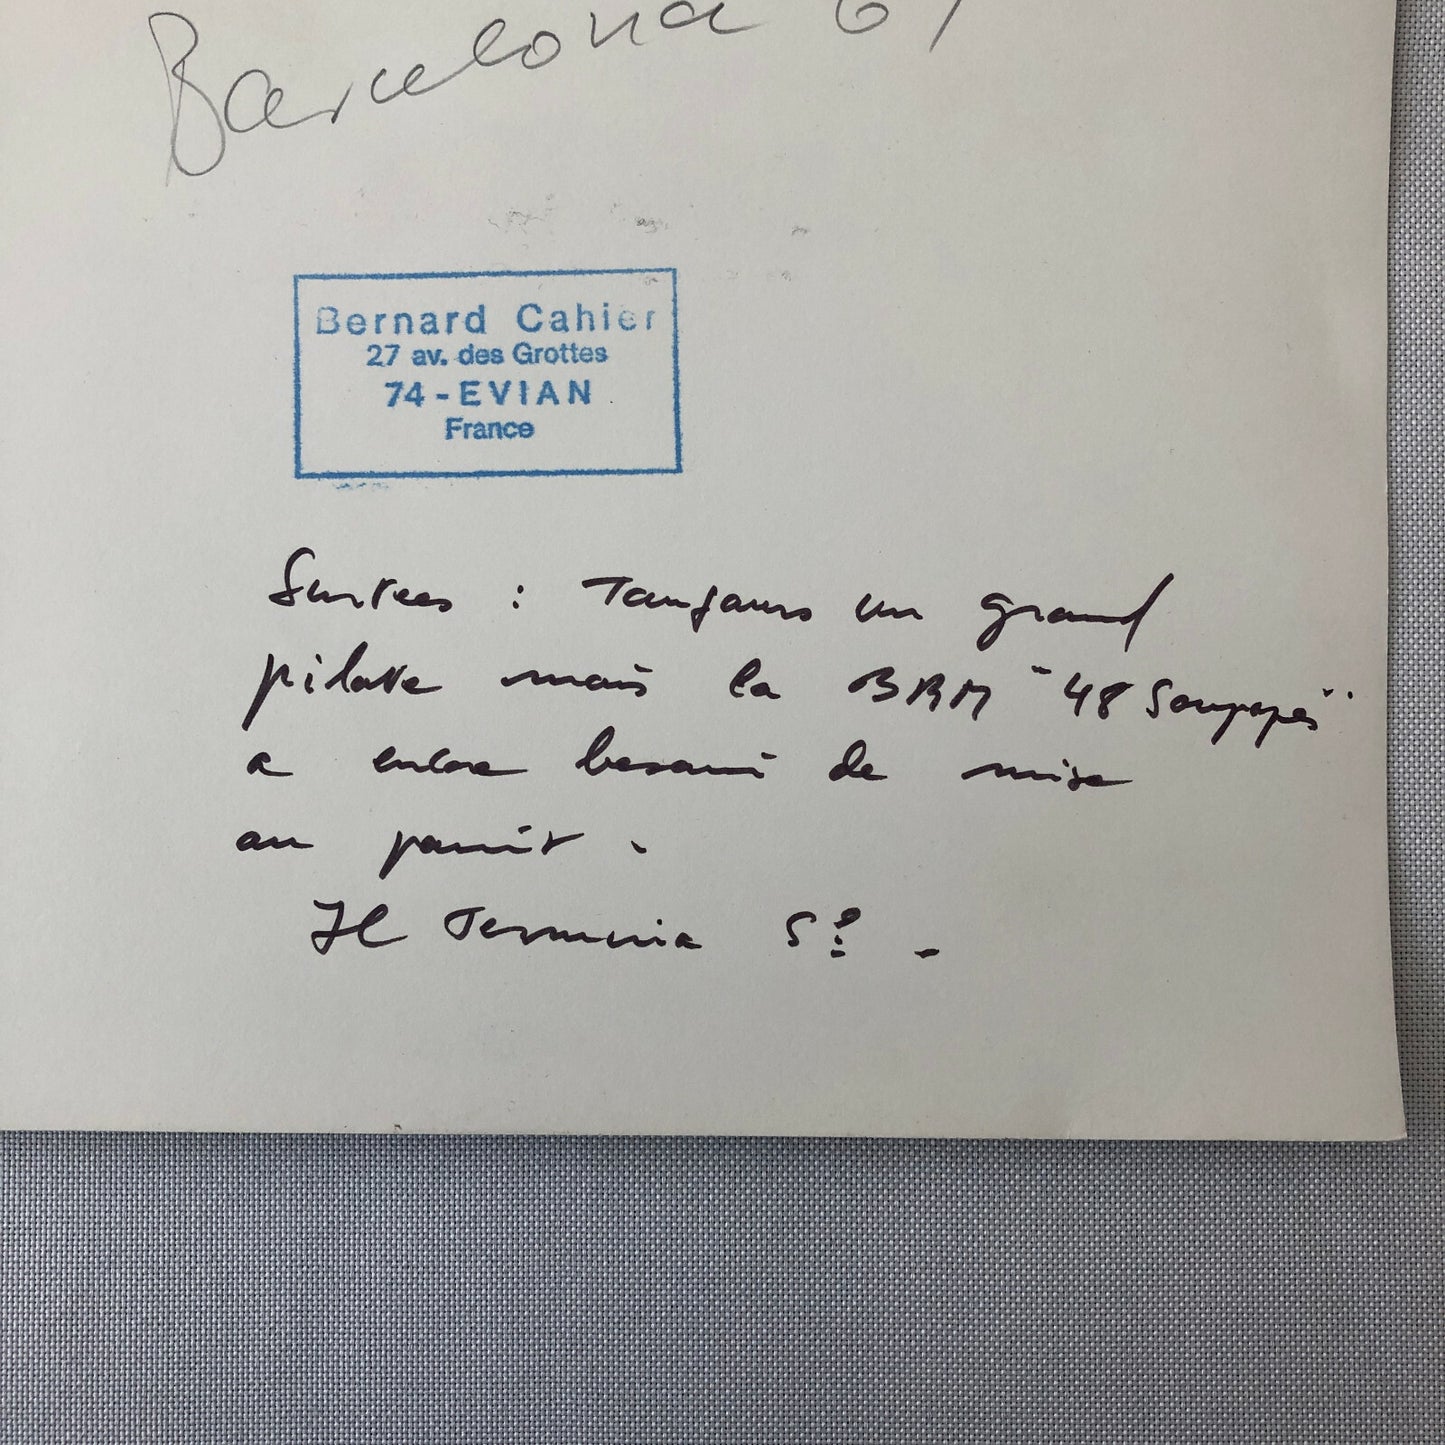 Barcelona 69
Bernard Cahier
27 av. des Grottes
74 - EVIAN
France
Surtees : Toujours un grand
pilote mais la BRM "48 Soupapes"
a encore besoin de mise
au point.
Il Termina 5e.